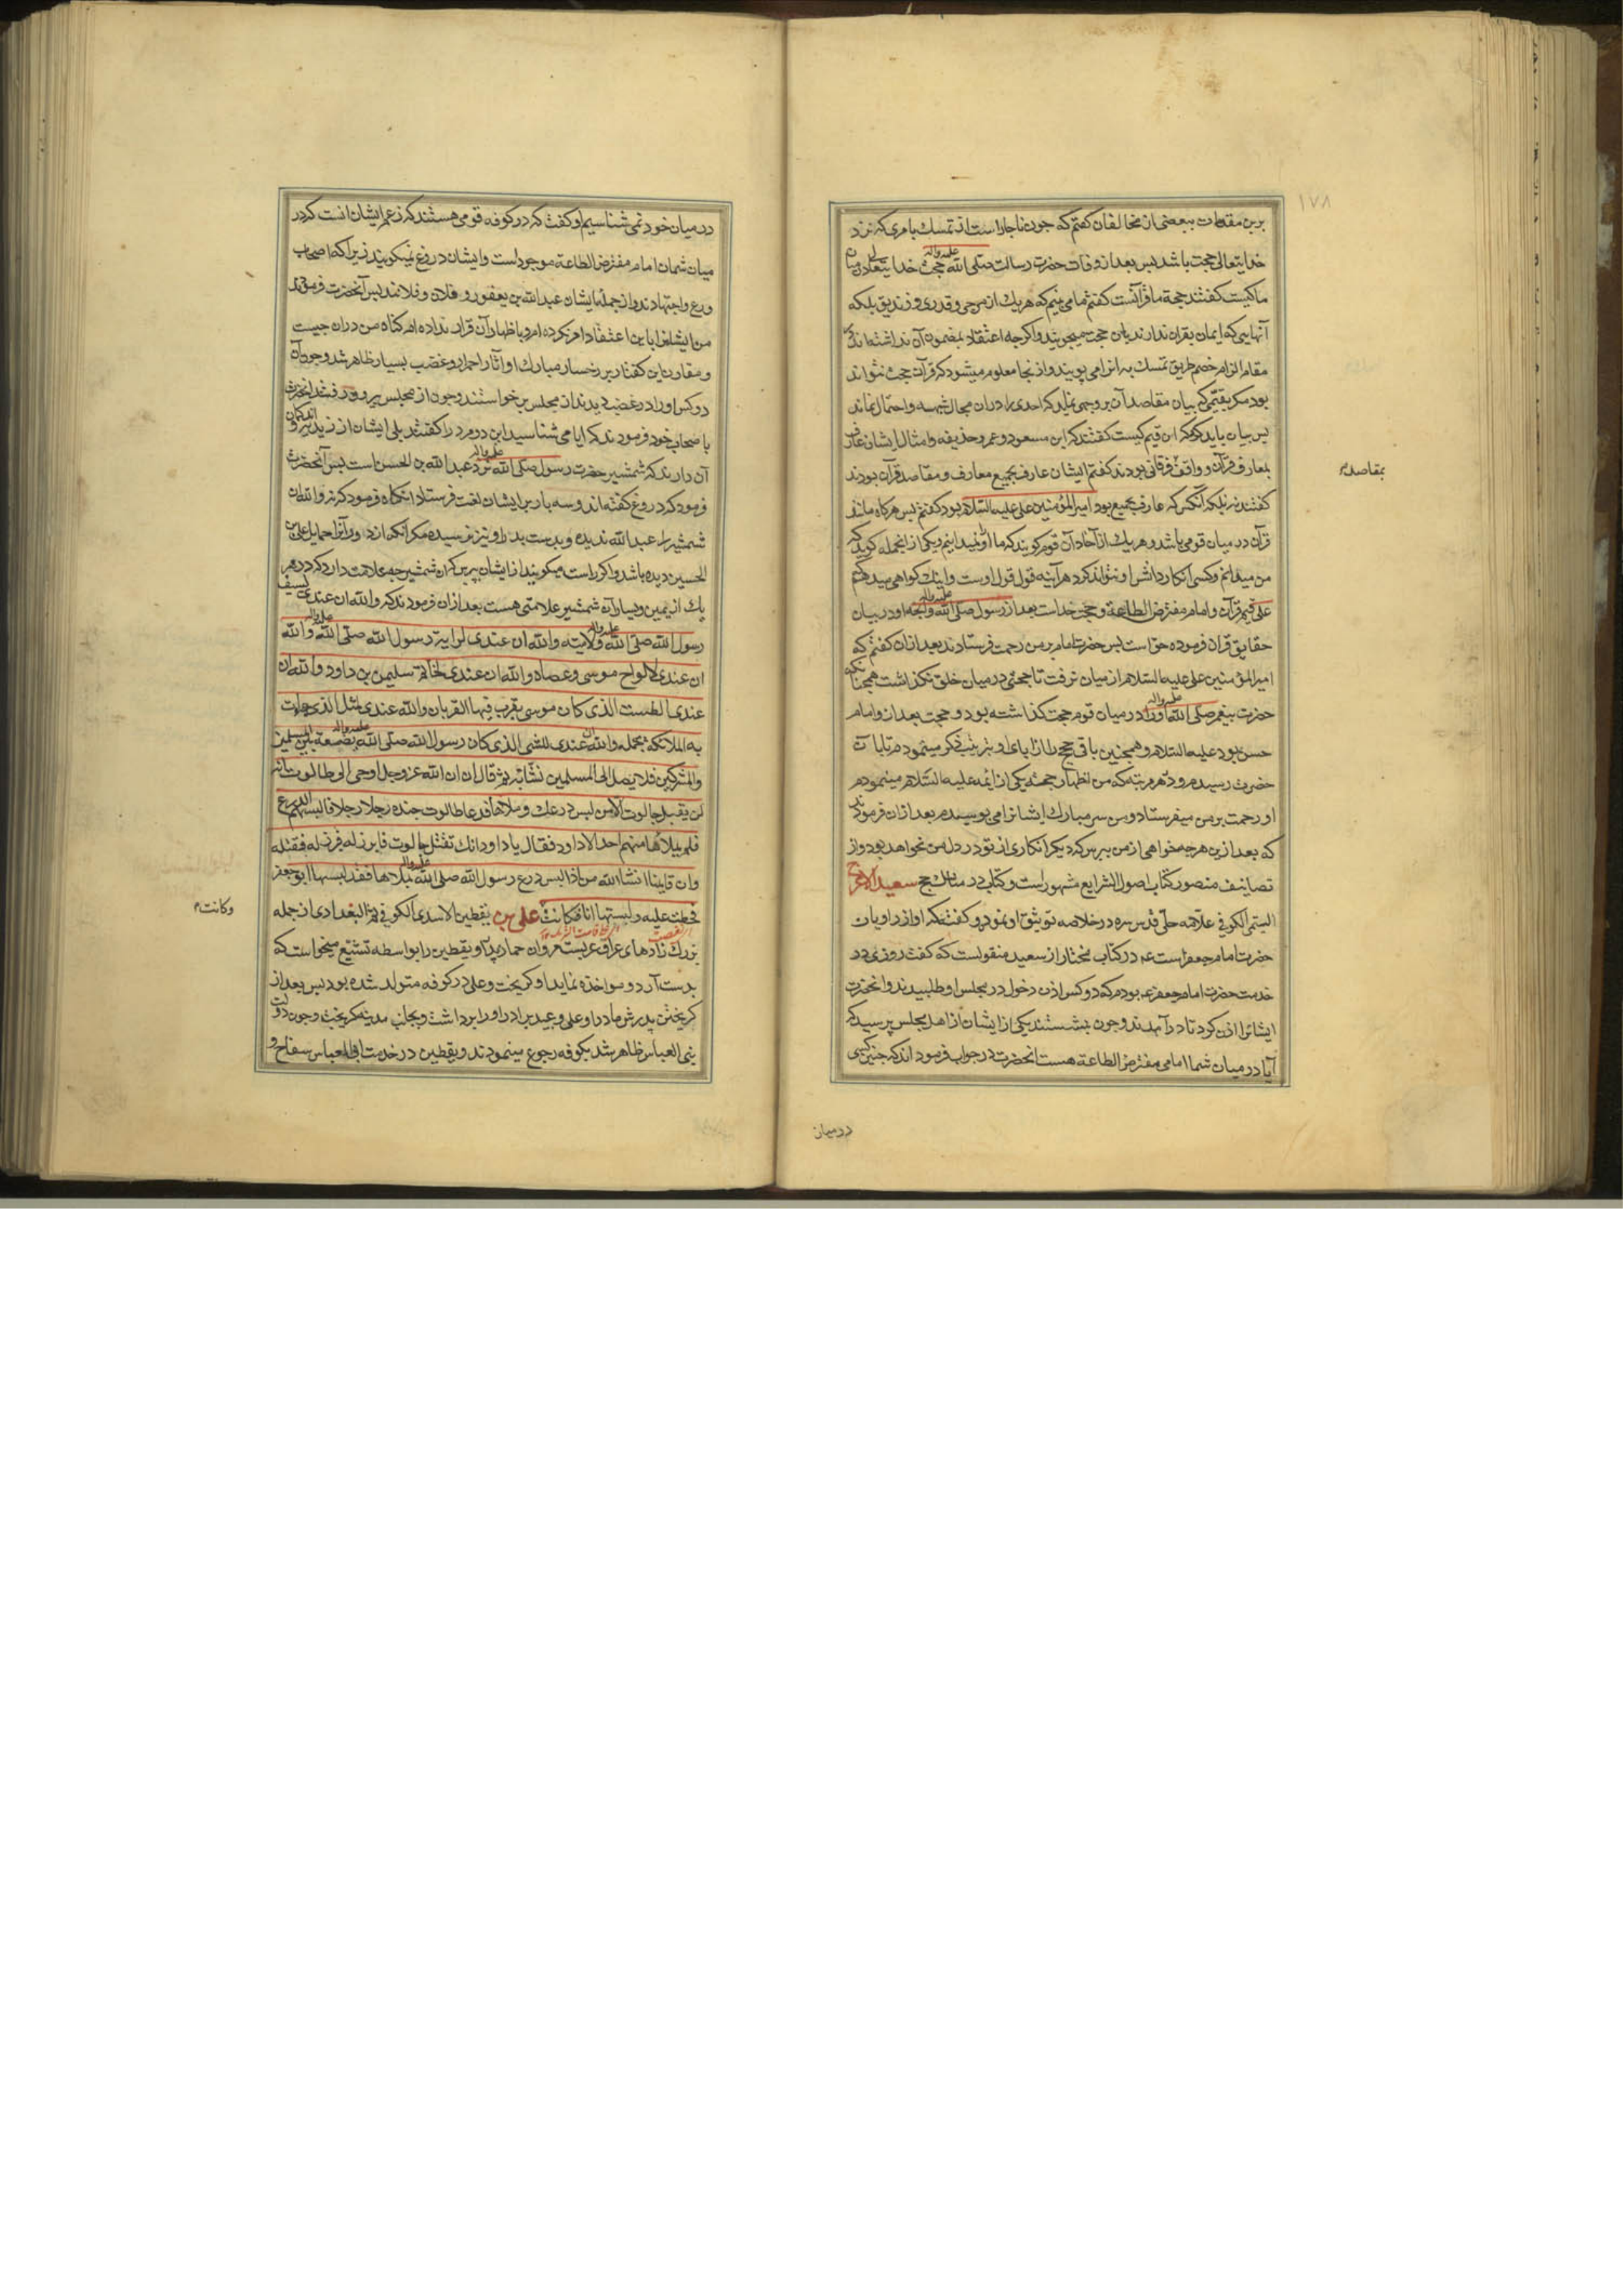 ١٧٨
برین مقدمات ببعضی از مخالفان کفتم که چون ناچار است از تمسک بامری که نزد
خدایتعالی حجت باشد بس بعد از وفات حضرت رسالت صلی الله علیه واله حجت خدایتعالی در میان
ما کیست کفتند حجة ما قرآنست کفتم ما می بینم که هر یک از مرجی و قدری و زندیق بلکه
آنهایی که ایمان بقران ندارند بان حجت میجویند و اکرچه اعتقاد بمضمون آن نداشته اند
مقام الزام خصم طریق تمسک به الزامی پویند و از نجا معلوم میشود که قرآن حجت نتواند
بود مکر بقیمی که بیان مقاصد آن بر وجهی نماید که احدی را دران مجال شبهه و احتمال نماند
بس بیان باید کرد که این قیم کیست کفتند که ابن مسعود و عمر و حذیفه و امثال ایشان عارف
بمعارف قرآن و واقف فرقانی بودند کفتم ایشان عارف بجمیع معارف و مقاصد قرآن بودند
بمقاصد
کفتند نه بلکه آنکس که عارف بجمیع بود امیر المؤمنین علی علیه السلام بود کفتم بس هرکاه مانند
قرآن در میان قومی باشد و هر یک از آحاد آن قوم کویند که ما او نمیدانیم و یکی از انجمله کوید که
من میدانم و کسی انکار دانش او نتواند کرد هر آینه قول قول اوست و اینک کواهی میدهم که
علی قیم قرآن و امام مفترض الطاعة و حجت خداست بعد از رسول صلی الله علیه واله و انچه او در بیان
حقایق قران فرموده حق است بس حضرت امام بر من رحمت فرستادند بعد از ان کفتم که
امیر المؤمنین علی علیه السلام از میان نرفت تا حجتی در میان خلق نکذاشت همچنانکه
حضرت پیغمبر صلی الله علیه واله او را در میان قوم حجت کذاشته بود و حجت بعد از و امام
حسن بود علیه السلام و همچنین باقی حجج را از ابای او بترتیب ذکر مینمودم تا بان
حضرت رسیدم و در هر مرتبه که من اظهار حجت یکی از ائمه علیه السلام مینمودم
او رحمت بر من میفرستاد و من سر مبارک ایشانرا می بوسیدم بعد از ان فرمودند
که بعد ازین هرچه میخواهی از من ببرس که دیکر انکاری از تو در دل من نخواهد بود و از
تصانیف منصور کتاب اصول الشرایع مشهور است و کتاب در مناسک حج سعید الاعرج
التیمی الکوفی علامه حلی قدس سره در خلاصه توثیق او نموده و کفته که او از راویان
حضرت امام جعفر است ع در کتاب مختار از سعید منقولست که کفت روزی در
خدمت حضرت امام جعفر ع بودم که دو کس اذن دخول در مجلس او طلبیدند و انحضرت
ایشانرا اذن کرد تا در آمدند و چون بنشستند یکی از ایشان از اهل مجلس پرسید که
آیا در میان شما امامی مفترض الطاعة هست انحضرت در جواب فرمودند که چنین کسی
در میان
در میان خود نمی شناسیم او کفت که در کوفه قومی هستند که زعم ایشان انست که در
میان شمان امام مفترض الطاعة موجود است و ایشان دروغ نمیکویند زیرا که اصحاب
ورع و اجتهادند و از جمله ایشان عبدالله بن یعفور و فلان و فلانند بس آنحضرت فرمودند
من ایشانرا باین اعتقاد امر نکرده ام و باظهار آن قرار نداده ام کناه من دران چیست
و مقارن این کفتار بر رخسار مبارک او آثار احمرار و غضب بسیار ظاهر شد و چون آن
دو کس او را در غضب دیدند از مجلس برخواستند و چون از مجلس بیرون رفتند انحضرت
باصحاب خود فرمودند که ایا می شناسید این دو مرد را کفتند بلی ایشان از زیدیه اند و کمان
آن دارند که شمشیر حضرت رسول صلی الله علیه واله نزد عبدالله بن الحسن است بس آنحضرت
فرمود که دروغ کفته اند و سه بار بر ایشان لعنت فرستاد انکاه فرمود که نه والله ان
شمشیر را عبدالله ندیده و بدست پدر او نیز نرسیده مکر آنکه از دور آنرا حمایل علی بن
الحسین دیده باشد و اکر راست میکویند از ایشان بپرس که ان شمشیر چه علامت دارد که در هر
یک از یمین و یسار آن شمشیر علامتی هست بعد ازان فرمودند که والله ان عندی لسیف
رسول الله صلی الله علیه واله ولامته والله ان عندی لرایة رسول الله صلی الله علیه واله والله
ان عندی لالواح موسی وعصاه والله ان عندی لخاتم سلیمن بن داود والله ان
عندی الطست الذی کان موسی یقرب فیها القربان والله عندی لمثل الذی جاءت
به الملائکه تحمله والله ان عندی للشی الذی کان رسول الله صلی الله علیه واله یضعه بین المسلمین
والمشرکین فلا یصل الی المسلمین نشابة ثم قال ان الله عزوجل اوحی الی طالوت انه
لن یقتل جالوت الا من لبس درعک وملاها فدعا طالوت جنده رجلا رجلا فالبسهم الدرع
فلم یملأها منهم احد الا داود فقال یا داود انک تقتل جالوت فابرز له فبرز له فقتله
وان قایمنا انشاءالله من اذا لبس درع رسول الله صلی الله علیه واله ملاها فقد لبسها ابو جعفر
فخطت علیه ولبستها انا فکانت علی بن یقطین الاسدی الکوفی ثم البغدادی از جمله
وکانت
بزرک زادهای عراق عربست مروان حمار پدر او یقطین را بواسطه تشیع میخواست که
بدست آرد و مواخذه نماید او کریخت و علی در کوفه متولد شده بود بس بعد از
کریختن پدرش مادر او علی و عبید برادر او را برداشت و بجانب مدینه کریخت و چون دولت
بنی العباس ظاهر شد بکوفه رجوع مینمودند و یقطین در خدمت ابی العباس سفاح و